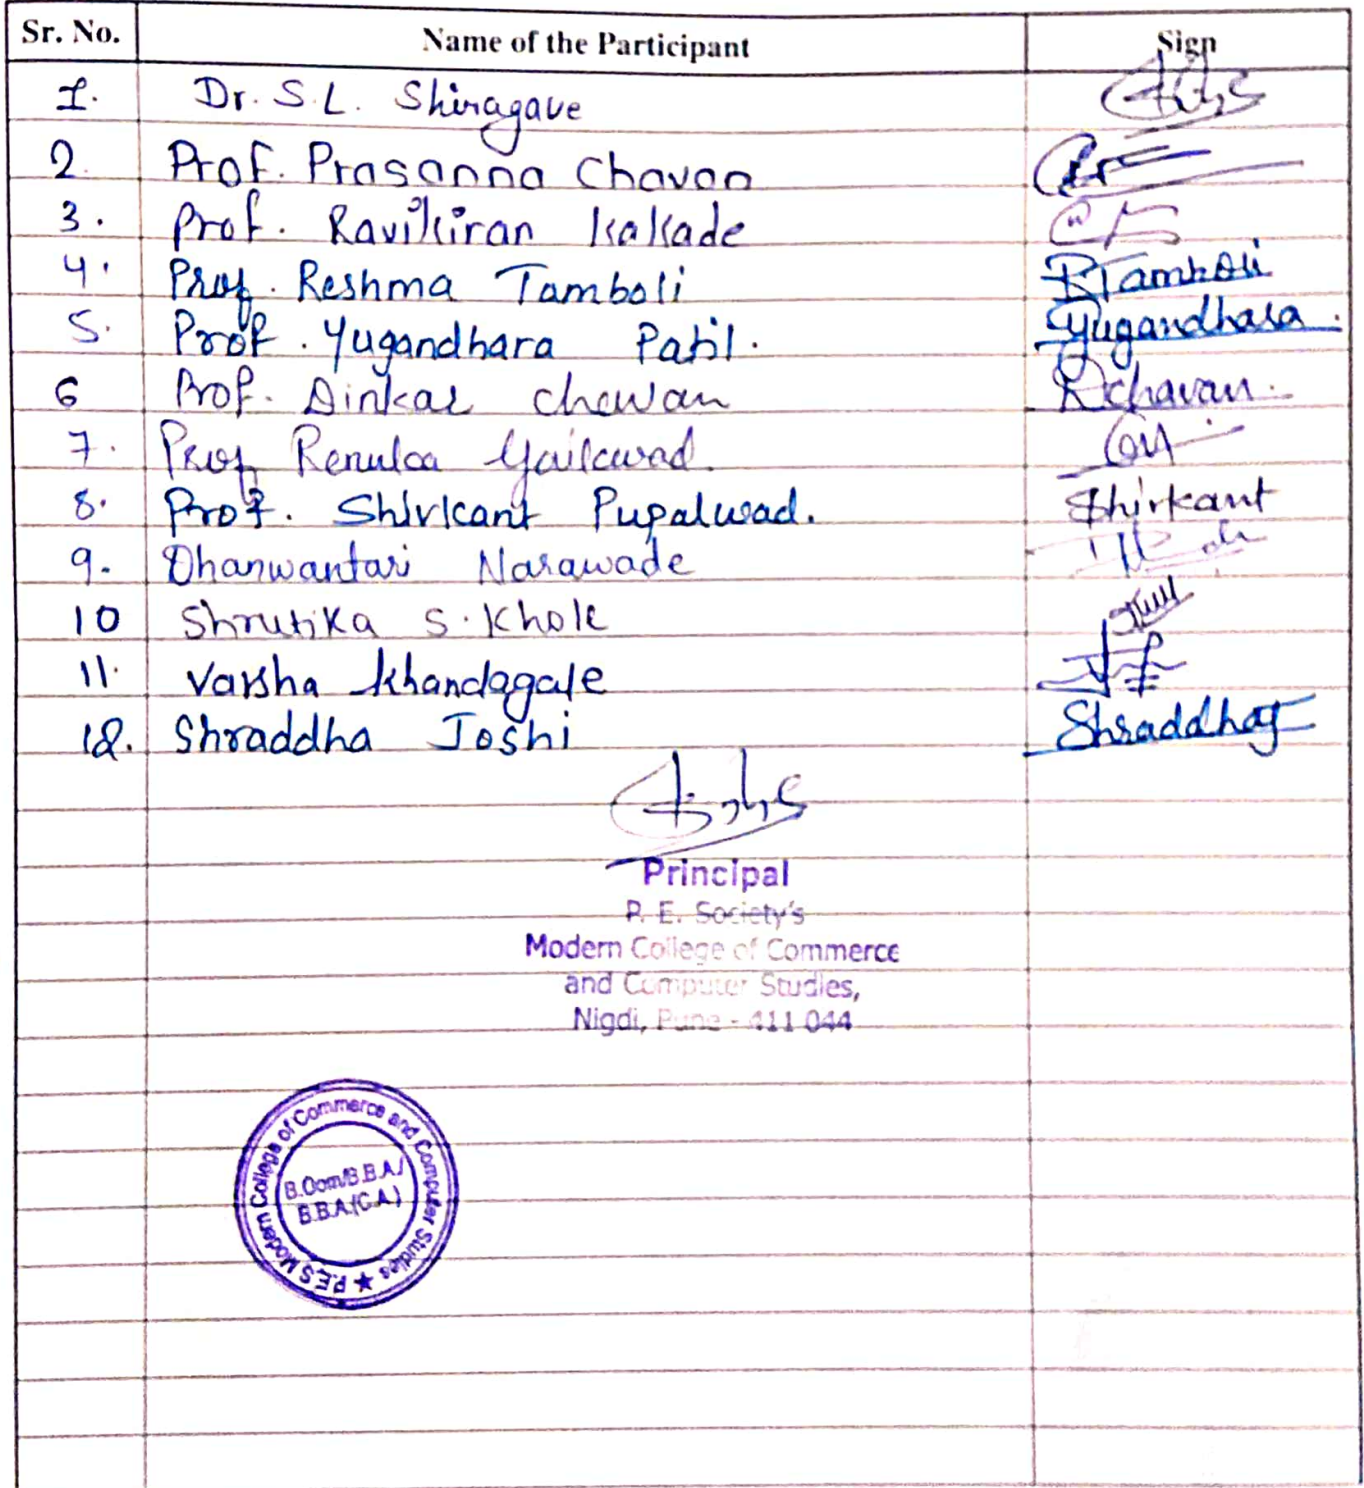 Sr. No. Name of the Participant Sign
1. Dr. S.L. Shiragave
2. Prof. Prasanna Chavan
3. Prof. Ravikiran Kakade
4. Prof. Reshma Tamboli RTamboli
5. Prof. Yugandhara Patil. Yugandhara.
6 Prof. Dinkar Chavan DChavan.
7. Prof. Renuka Gaikwad.
8. Prof. Shirkant Pupalwad. Shirkant
9. Dhanwantari Narawade
10 Shrutika S. Khole
11. Varsha Khandagale
12. Shraddha Joshi ShraddhaJ
Principal
P. E. Society's
Modern College of Commerce
and Computer Studies,
Nigdi, Pune - 411 044
P.E.S Modern College of Commerce and Computer Studies ★
B.Com/B.B.A/
B.B.A.(C.A.)